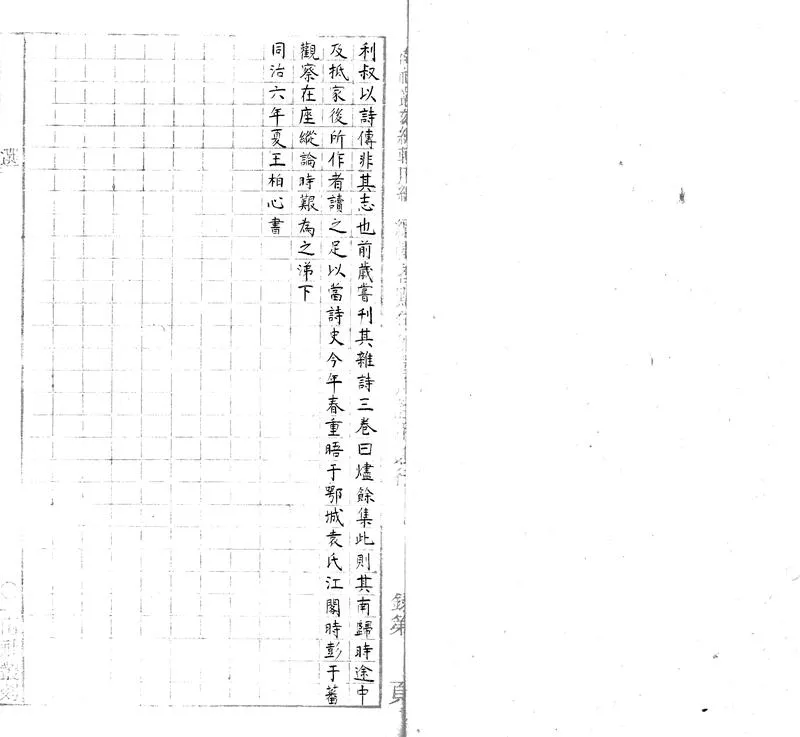 利叔以詩傳非其志也前歲嘗刊其雜詩三卷曰燼餘集此則其南歸時途中
及抵家後所作者讀之足以當詩史今年春重晤于鄂城袁氏江閣時彭于蕃
觀察在座縱論時艱為之涕下
同治六年夏王柏心書
選
錄第
頁